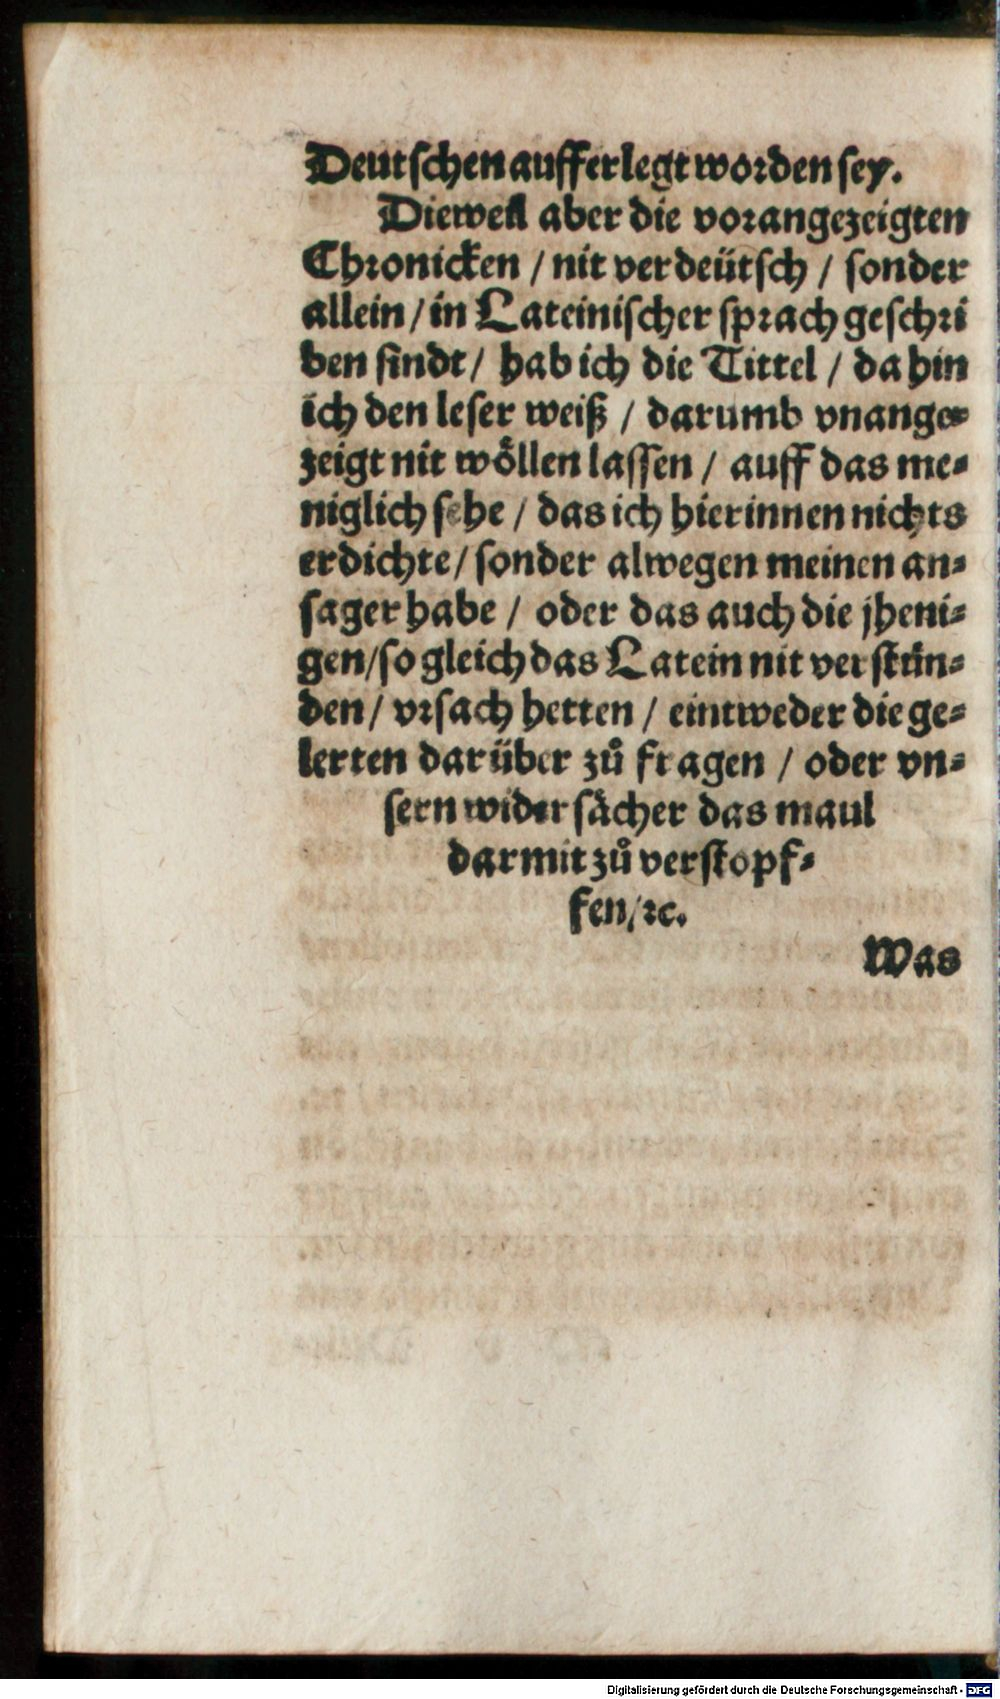 Deutschen aufferlegt worden sey.
Dieweil aber die vorangezeigten
Chronicken / nit verdeütsch / sonder
allein / in Lateinischer sprach geschri
ben sindt / hab ich die Tittel / da hin
ich den leser weiß / darumb vnange⸗
zeigt nit woͤllen lassen / auff das me⸗
niglich sehe / das ich hierinnen nichts
erdichte / sonder alwegen meinen an⸗
sager habe / oder das auch die jheni⸗
gen / so gleich das Latein nit verstün⸗
den / vrsach hetten / eintweder die ge⸗
lerten darüber zuͦ fragen / oder vn⸗
sern widersaͤcher das maul
darmit zuͦ verstopf⸗
fen / ꝛc.
Was
Digitalisierung gefördert durch die Deutsche Forschungsgemeinschaft - DFG